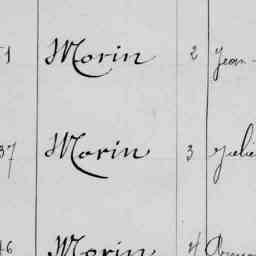 1 Morin 2 Jean
37 Morin 3 Julie
46 Morin 4